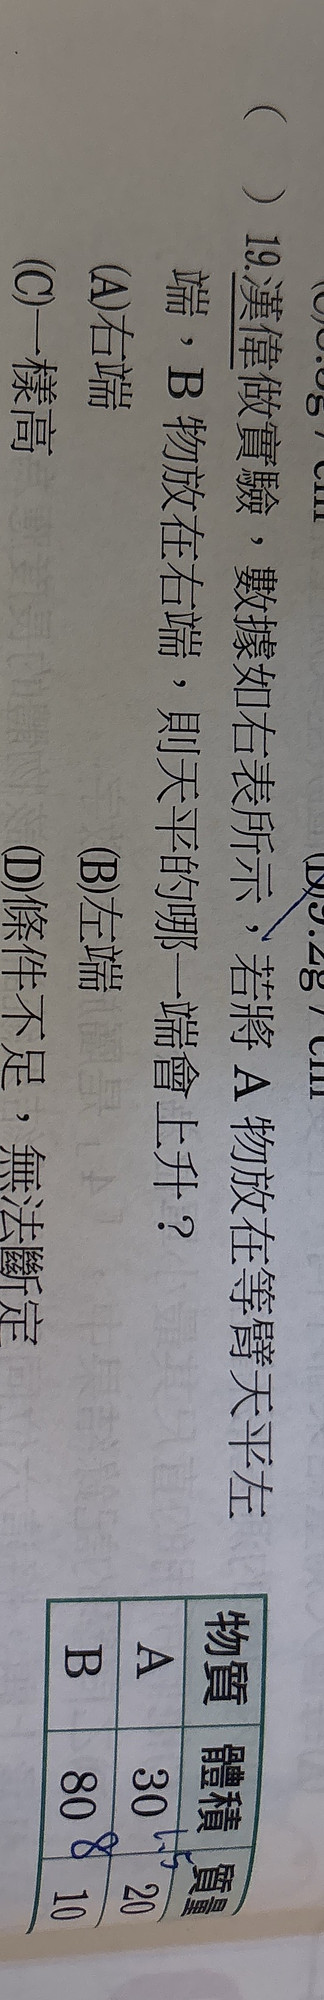 (D)9.2g/cm
( ) 19.漢偉做實驗，數據如右表所示，若將 A 物放在等臂天平左
端，B 物放在右端，則天平的哪一端會上升？
(A)右端 (B)左端
(C)一樣高 (D)條件不足，無法斷定
物質 體積 質量
A 30 1.5 20
B 80 8 10